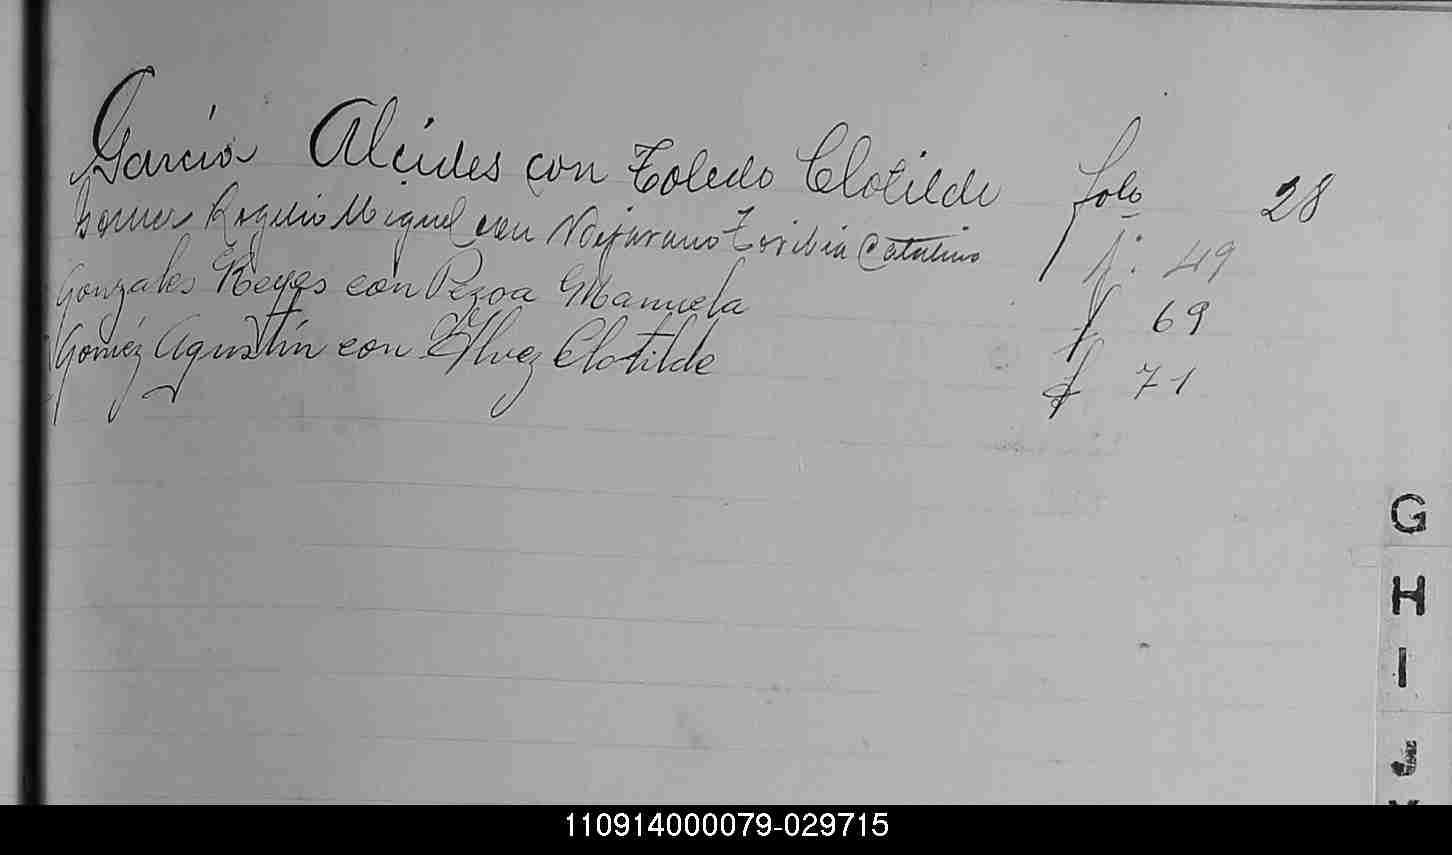 García Alcides con Toledo Clotilde folo 28
Gomez Rogelio Miguel con Toribia Catalina f. 49
Gonzales Reyes con Pezoa Manuela f 69
Goméz Agustín con Clotilde f 71
G
H
I
J
110914000079-029715